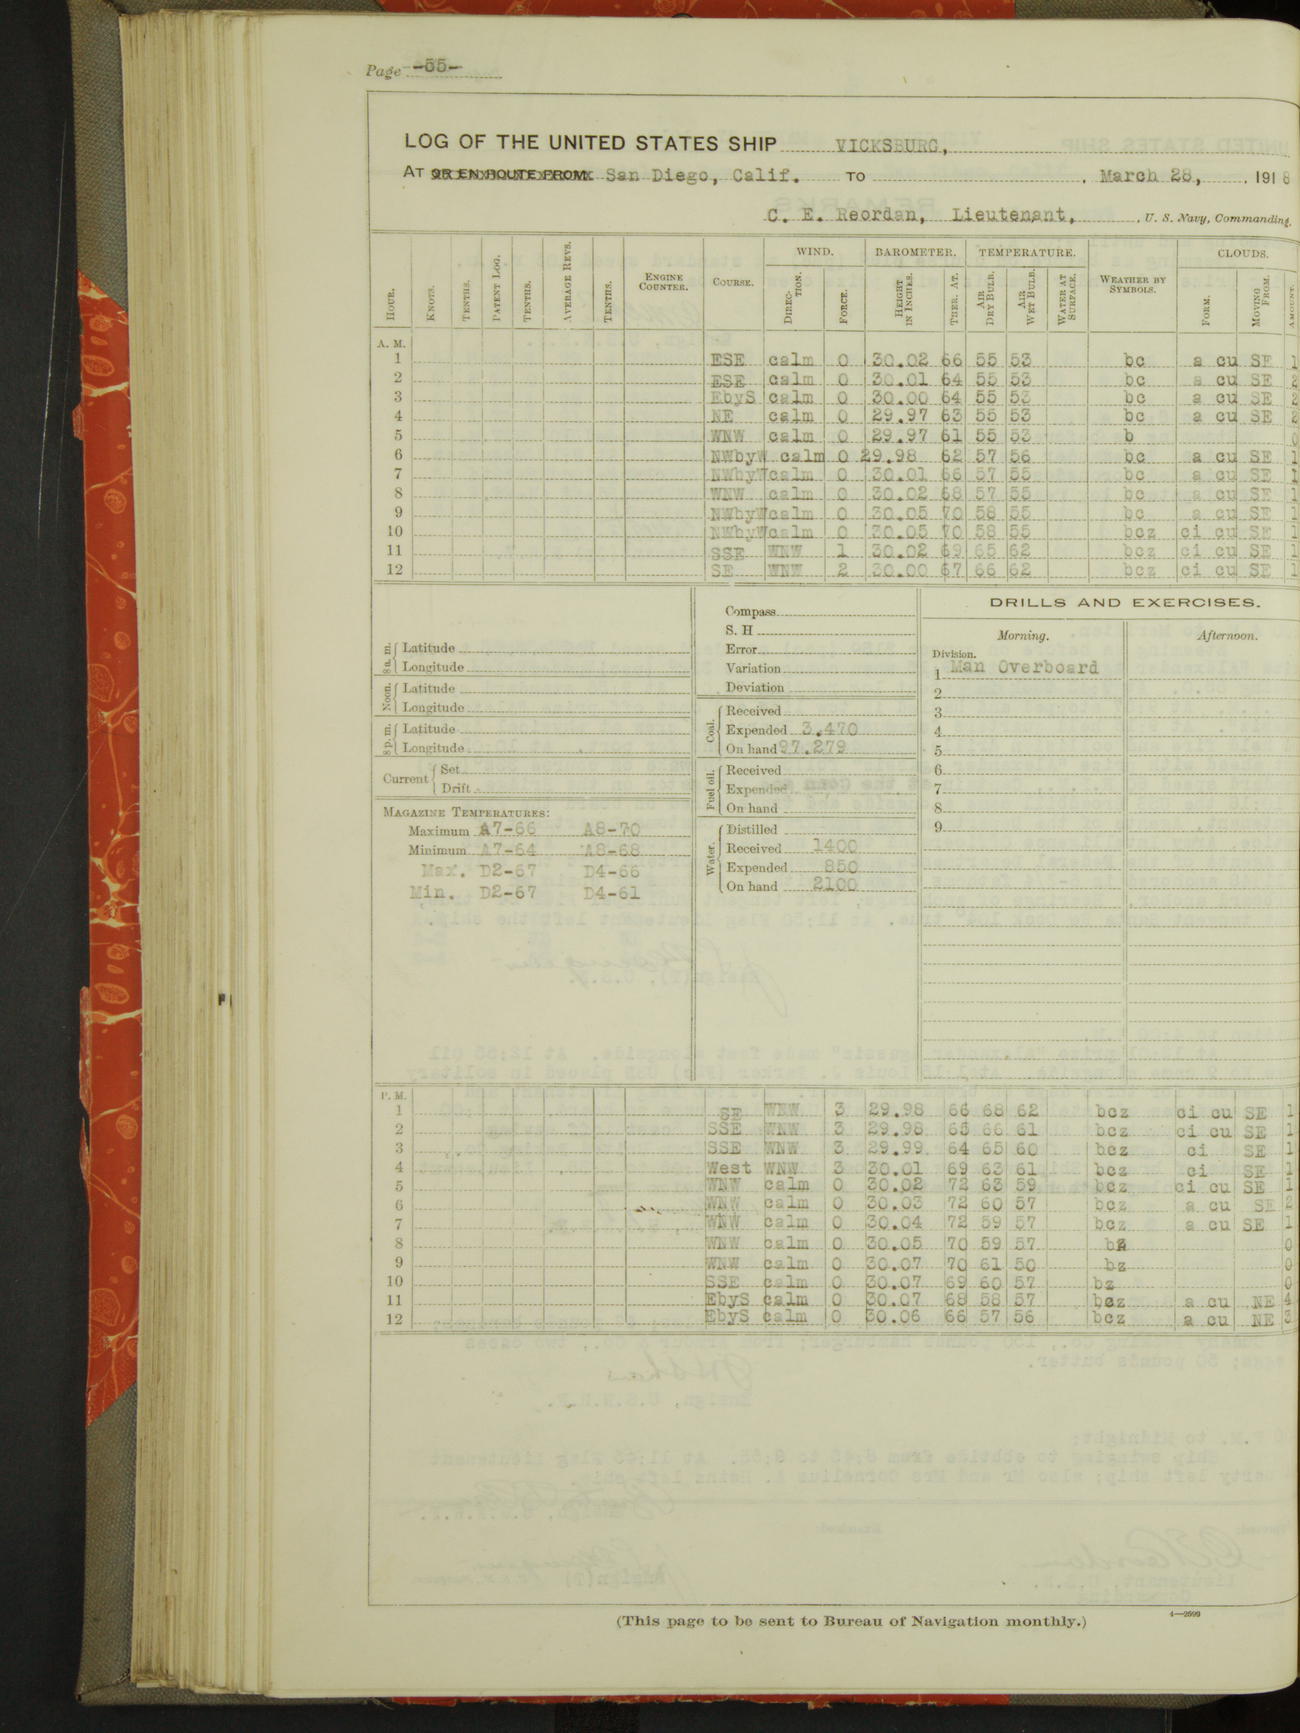 Page -55-
LOG OF THE UNITED STATES SHIP VICKSBURG,
AT OR EN ROUTE FROM San Diego, Calif. TO , March 28, , 1918
C. E. Reordan, Lieutenant, , U. S. Navy, Commanding.
HOUR. KNOTS. TENTHS. PATENT LOG. TENTHS. AVERAGE REVS. TENTHS. ENGINE COUNTER. COURSE. WIND. DIRECTION. FORCE. BAROMETER. HEIGHT IN INCHES. THER. AT. TEMPERATURE. AIR DRY BULB. AIR WET BULB. WATER AT SURFACE. WEATHER BY SYMBOLS. CLOUDS. FORM. MOVING FROM. AMOUNT.
A. M.
1 ESE calm 0 30.02 66 55 53 bc a cu SE 1
2 ESE calm 0 30.01 64 55 53 bc a cu SE 2
3 EbyS calm 0 30.00 64 55 53 bc a cu SE 2
4 NE calm 0 29.97 63 55 53 bc a cu SE 2
5 WNW calm 0 29.97 61 55 53 b 0
6 NWbyW calm 0 29.98 62 57 56 bc a cu SE 1
7 NWbyW calm 0 30.01 66 57 55 bc a cu SE 1
8 WNW calm 0 30.02 68 57 55 bc a cu SE 1
9 NWbyW calm 0 30.05 70 58 55 bc a cu SE 1
10 NWbyW calm 0 30.05 70 58 55 bcz ci cu SE 1
11 SSE WNW 1 30.02 69 65 62 bcz ci cu SE 1
12 SE WNW 2 30.00 67 66 62 bcz ci cu SE 1
8 a. m. Latitude
Longitude
Noon. Latitude
Longitude
8 p. m. Latitude
Longitude
Current Set
Drift
MAGAZINE TEMPERATURES:
Maximum A7-66 A8-70
Minimum A7-64 A8-68
Max. D2-67 D4-66
Min. D2-67 D4-61
Compass
S. H
Error
Variation
Deviation
Coal. Received
Expended 3.470
On hand 97.279
Fuel oil. Received
Expended
On hand
Water. Distilled
Received 1400
Expended 850
On hand 2100
DRILLS AND EXERCISES.
Morning. Afternoon.
Division.
1 Man Overboard
2
3
4
5
6
7
8
9
P. M.
1 SE WNW 3 29.98 66 68 62 bcz ci cu SE 1
2 SSE WNW 3 29.98 65 66 61 bcz ci cu SE 1
3 SSE WNW 3 29.99 64 65 60 bcz ci SE 1
4 West WNW 3 30.01 69 63 61 bcz ci SE 1
5 WNW calm 0 30.02 72 63 59 bcz ci cu SE 1
6 WNW calm 0 30.03 72 60 57 bcz a cu SE 2
7 WNW calm 0 30.04 72 59 57 bcz a cu SE 1
8 WNW calm 0 30.05 70 59 57 bz 0
9 WNW calm 0 30.07 70 61 50 bz 0
10 SSE calm 0 30.07 69 60 57 bz 0
11 EbyS calm 0 30.07 68 58 57 bcz a cu NE 4
12 EbyS calm 0 30.06 66 57 56 bcz a cu NE 3
(This page to be sent to Bureau of Navigation monthly.)
4—2599